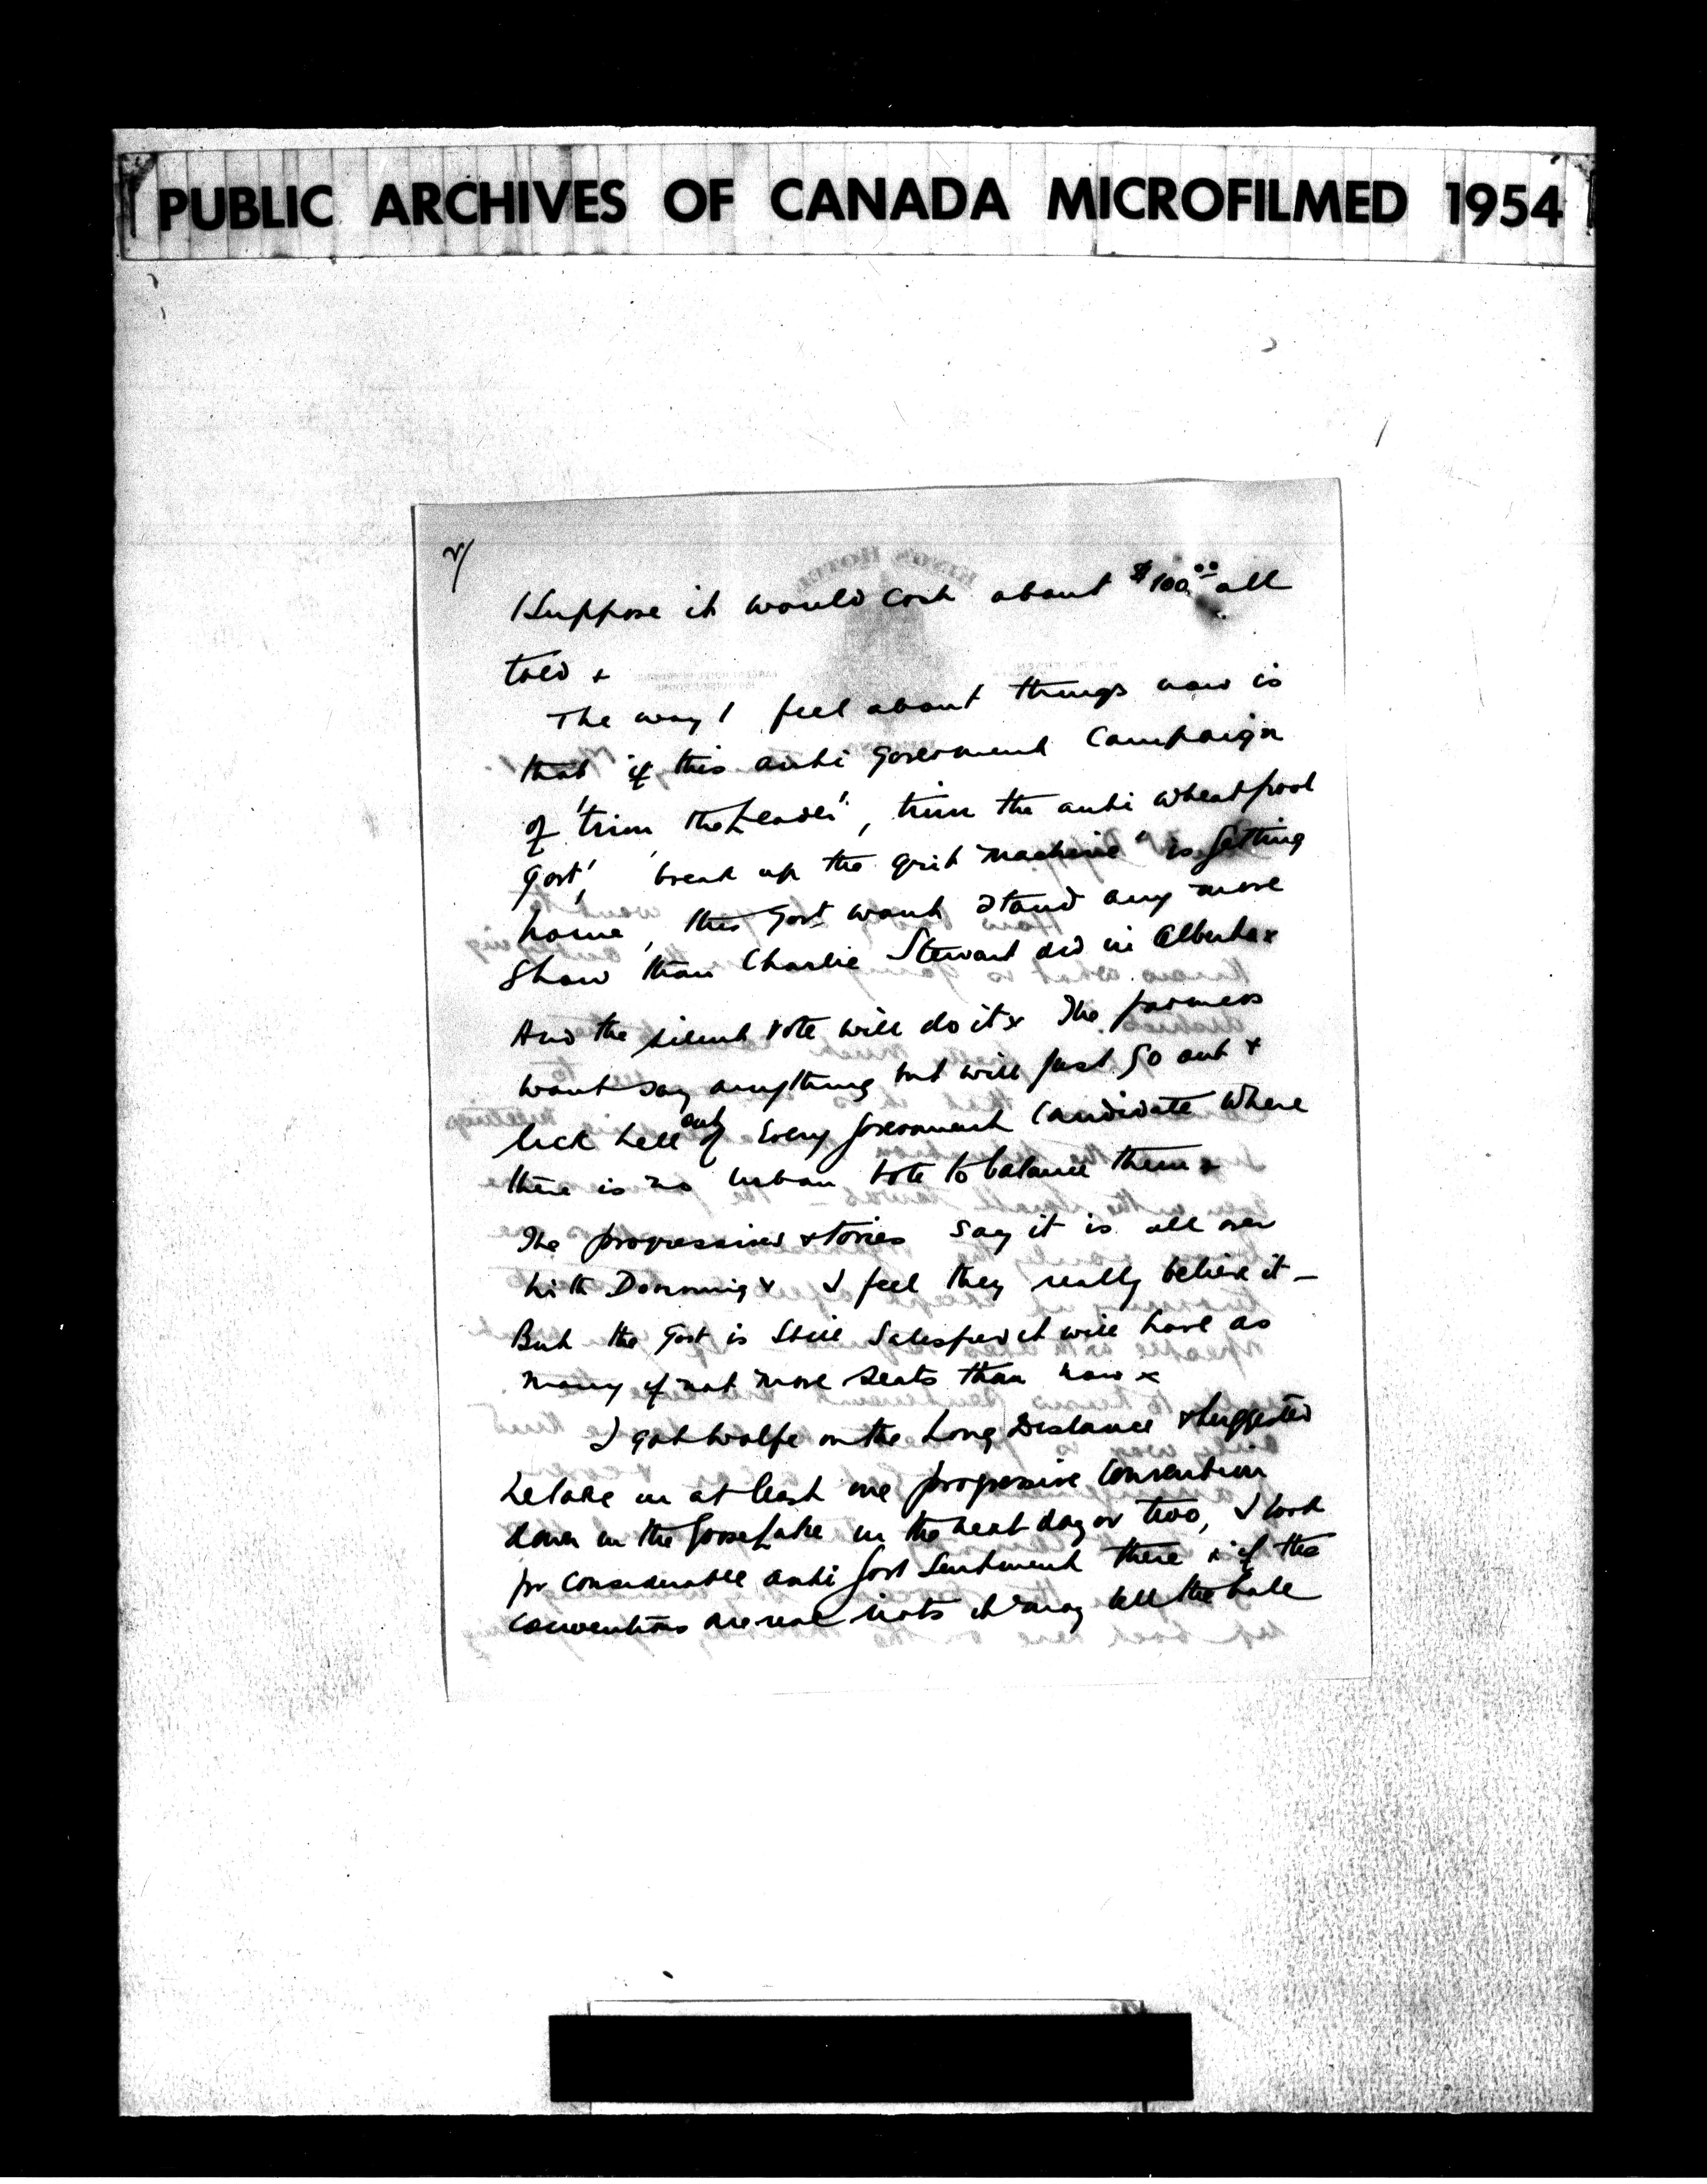 PUBLIC ARCHIVES OF CANADA MICROFILMED 1954
2/
KING'S HOTEL
I Suppose it would cost about $100.00 all
told x
The way I feel about things now is
that if this anti Government Campaign
of 'trim the Leader', trim the anti wheat pool
Govt', 'break up the grit machine" is getting
home, this Govt wont stand any more
show than Charlie Stewart did in Alberta x
And the silent vote will do it x The farmers
wont say anything but will just go out &
lick hell out of Every Government Candidate where
there is no urban vote to balance them x
The progressives & tories say it is all over
with Dunning & I feel they really believe it —
But the Govt is still Salesful it will have as
many if not more seats than now x
I got Wolfe on the Long Distance & suggested
he take in at least one progressive Convention
down in the Goose Lake in the next day or two, I look
for considerable anti Govt Sentiment there & if the
conventions are real riots it may tell the tale